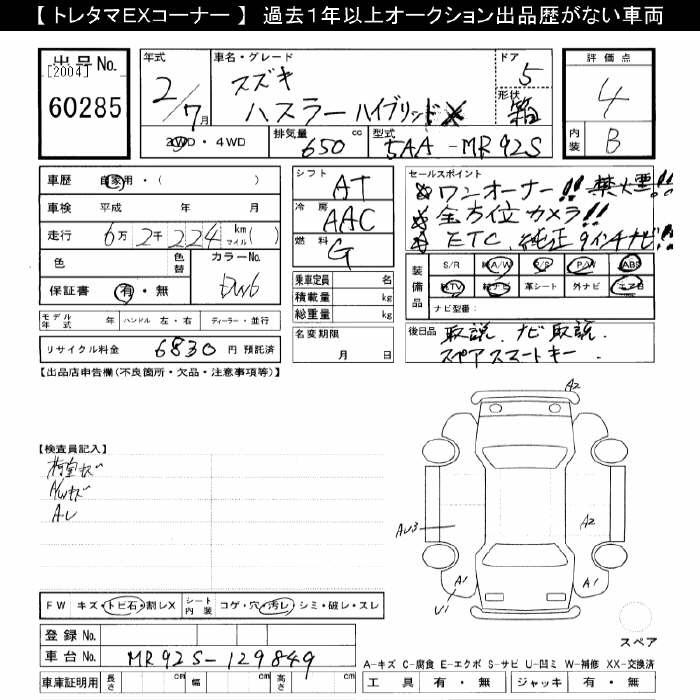 【 トレタマEXコーナー 】 過去1年以上オークション出品歴がない車両
出品No.
[2004]
60285
年式
2/7月
車名・グレード
スズキ
ハスラー ハイブリッド X
ドア
5
形状
箱
2WD・4WD
排気量
650 cc
型式
5AA-MR92S
評価点
4
内装
B
車歴 自家用・( )
車検 平成 年 月
走行 6万2千224 km マイル( )
色 色替
カラーNo.
保証書 有・無
モデル年式 年 ハンドル 左・右 ディーラー・並行
リサイクル料金 6830 円 預託済
シフト AT
冷房 AAC
燃料 G
乗車定員 名
積載量 kg
総重量 kg
名変期限
月 日
セールスポイント
ワンオーナー!! 禁煙!!
全方位カメラ!!
ETC、純正9インチナビ!!
装備品
S/R 純A/W P/S P/W ABS
純TV 純ナビ 革シート 外ナビ エアB
ナビ型番:
後日品 取説、ナビ取説、
スペアスマートキー
【出品店申告欄(不良箇所・欠品・注意事項等)】
【検査員記入】
荷室キズ
AWキズ
A2
AU3
A2
A1
U1
A1
スペア
FW キズ・トビ石・割レX シート内装 コゲ・穴・汚レ・シミ・破レ・スレ
登録No.
車台No. MR92S-129849
車庫証明用 長さ cm 幅 cm 高さ cm
A-キズ C-腐食 E-エクボ S-サビ U-凹ミ W-補修 XX-交換済
工具 有・無 ジャッキ 有・無